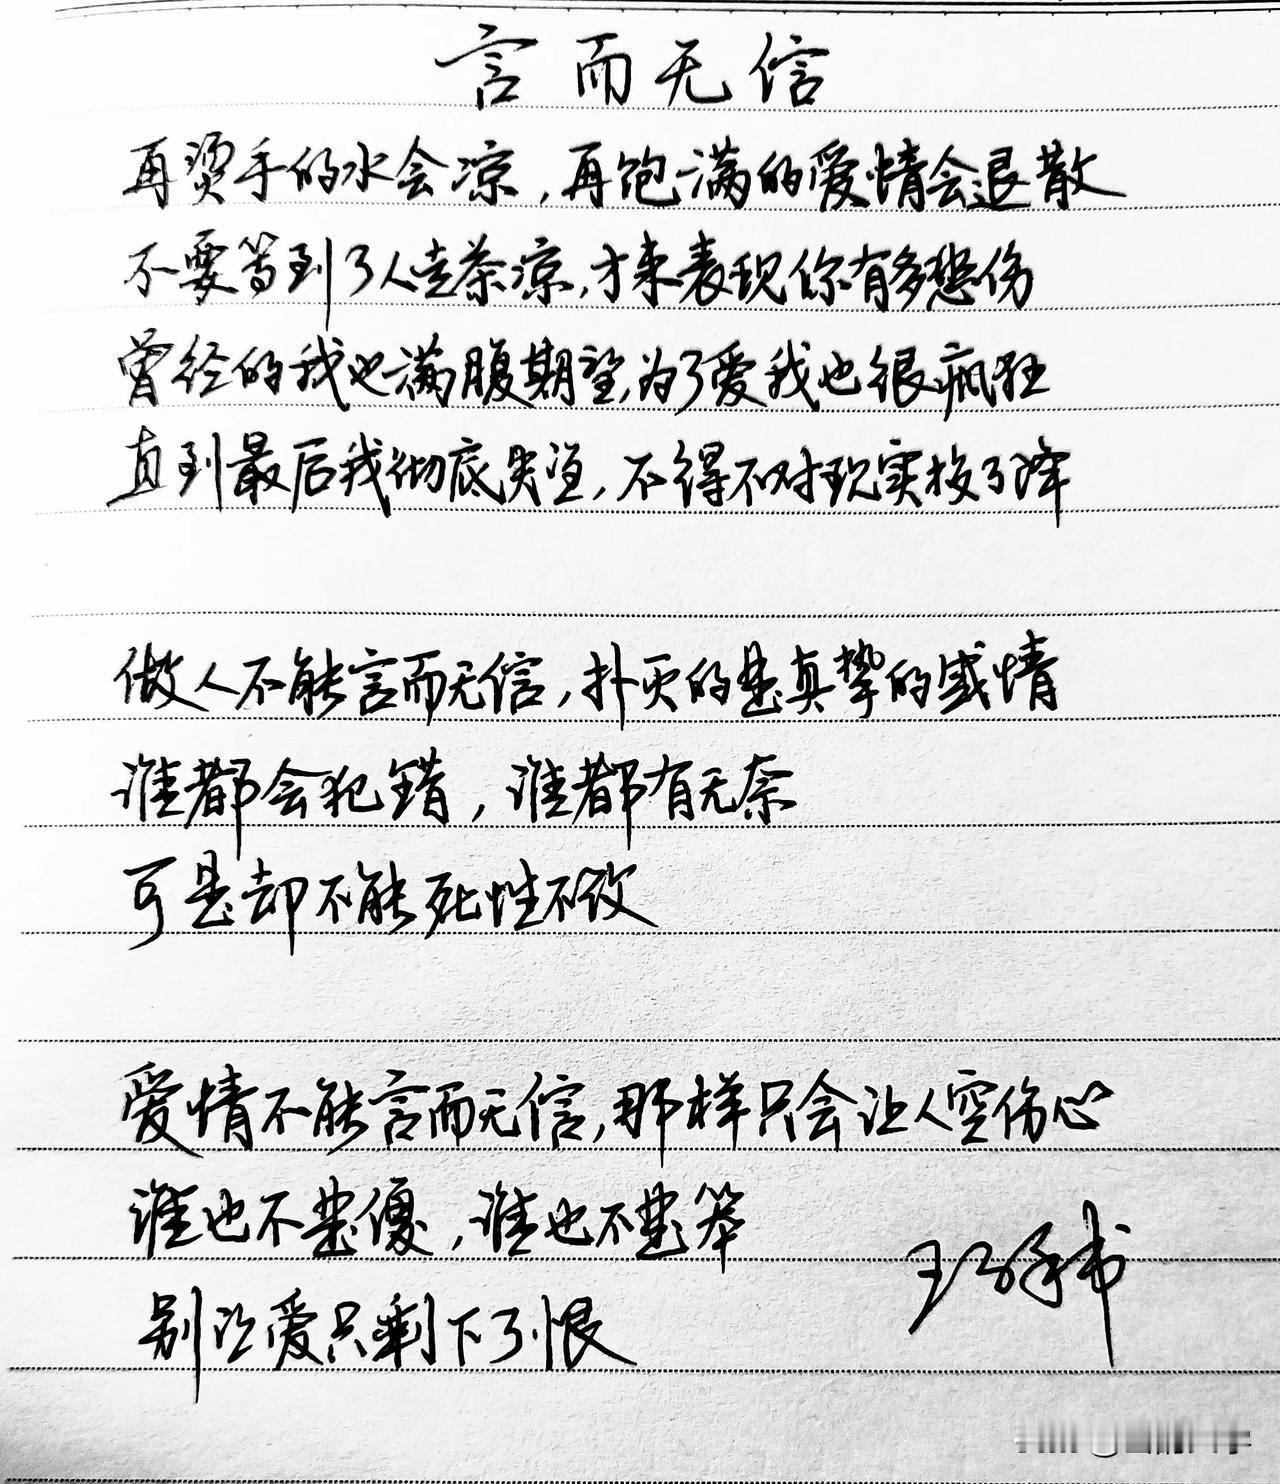 言而无信
再烫手的水会凉,再饱满的爱情会退散
不要等到了人走茶凉,才来表现你有多悲伤
曾经的我也满腹期望,为了爱我也很疯狂
直到最后我彻底失望,不得不对现实投了降
做人不能言而无信,扑灭的是真挚的感情
谁都会犯错,谁都有无奈
可是却不能死性不改
爱情不能言而无信,那样只会让人空伤心
谁也不是傻,谁也不是笨
别让爱只剩下了恨